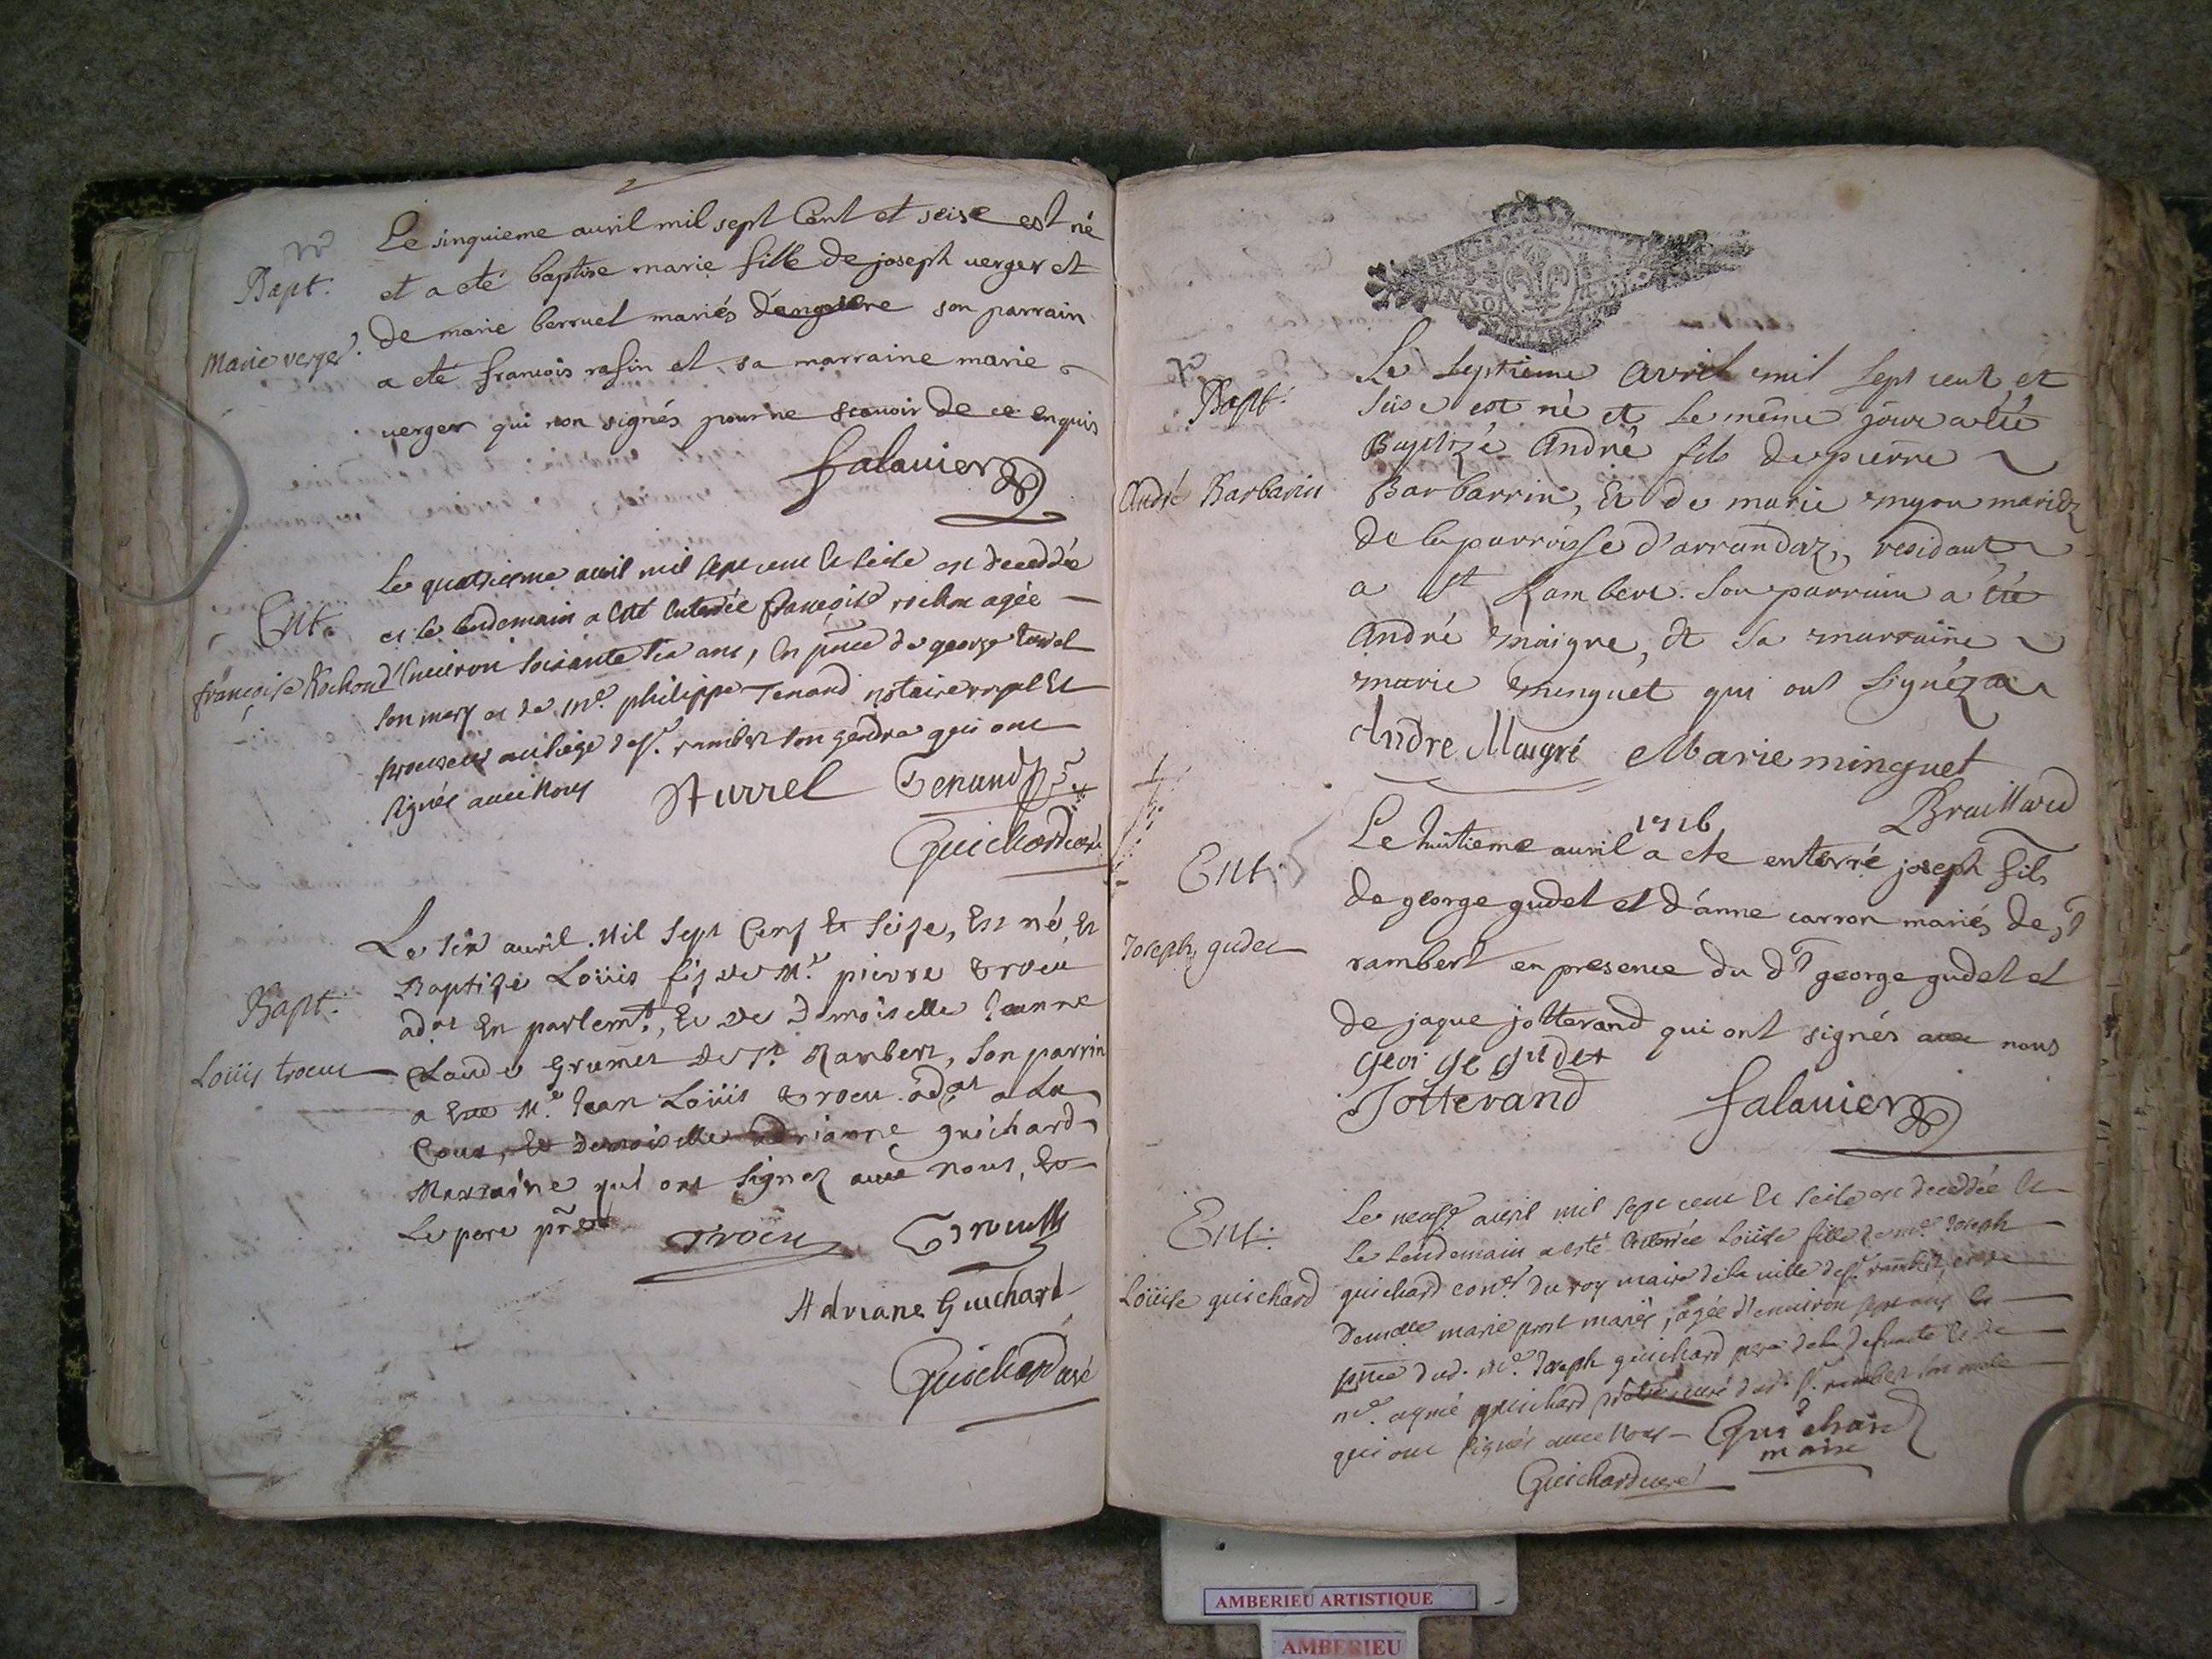 Le sinquieme auril mil sept Cent et seise est né
Bapt.
et a eté baptise marie fille de joseph verger et
de marie berruel mariés son parrain
Marie verger
a eté francois rasin et sa marraine marie
verger qui non signés pour ne scauoir de ce enquis
falauier
Le quatrieme auril mil sept cent et seise est decedée
Ent.
et le lendemain a esté enterrée françoise rochon agée
françoise Rochond
d'enuiron soixante six ans, en pnce de george turrel
son mary et de me. philippe Tenand notaire royal et
procureur au siege de st. rambert son gendre qui ont
signés auec nous
Hurrel Tenand
Guichard curé
Le six auril Mil sept Cens et seise, Est né, Et
Baptisé Loüis fis de Mr. pierre trocu
Bapt.
adat En parlemt., Et de Demoiselle Jeanne
Loüis trocu
Claude Grumet de st. Rambert, son parrin
a Esté Mr. Jean Loüis trocu adat a La
Cour, Et Demoiselle adrianne guichard
Marraine qui ont signez auec nous, Et
Le pere pnt
Trocu Trocu
Adriane Guichard
Guichard curé
Le septieme avril mil sept cent et
Bapt.
seise est né et le même jour a été
Baptizé André fils de pierre
André Barbarin
Barbarrin, Et de marie myon mariez
de la parroisse d'arrandaz, residant
a st Rambert. son parrain a été
André maigre, et sa marraine
marie minguet qui ont signéz
Andre Maigré Marie minguet
Braillard
1716
Le huitieme auril a ete enterré joseph fils
Ent.
de george gudet et d'anne carron mariés de st
Joseph gudet
rambert en presence du dt george gudet et
de jaque jotterand qui ont signés auec nous
geor ge gudet
Jotterand falauier
Le neufe auril mil sept cent et seise est decedée et
Ent.
le lendemain a esté enterrée Loüise fille de me. Joseph
Loüise guichard
guichard coner. du roy maire de la uille de st. rambert, et de
Demelle marie prost mariés, agée d'enuiron sept ans en
pnce dud. Me. Joseph guichard pere de la defuncte et de
me. aymé guichard curé dud. st. rambert son oncle
qui ont signés auec nous
Guichard
maire
Guichard curé
AMBERIEU ARTISTIQUE
AMBERIEU